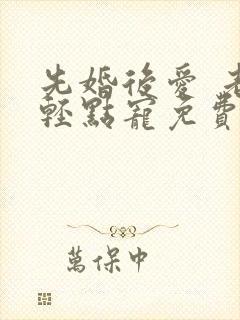 先婚後愛 老
輕點寵免費
萬保中